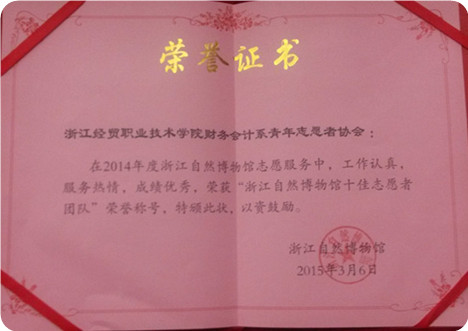 荣誉证书
浙江经贸职业技术学院财务会计系青年志愿者协会：
在2014年度浙江自然博物馆志愿服务中，工作认真，
服务热情，成绩优秀，荣获“浙江自然博物馆十佳志愿者
团队”荣誉称号，特颁此状，以资鼓励。
浙江自然博物馆
2015年3月6日